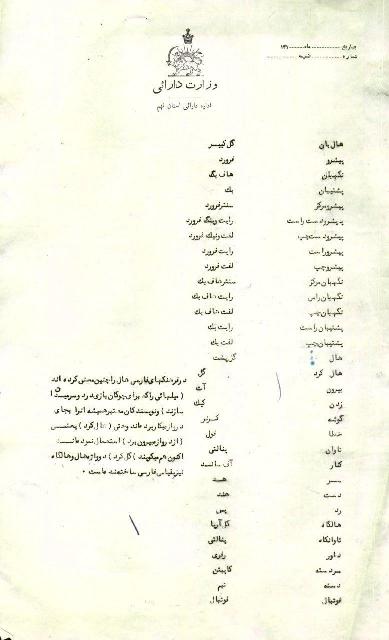 بتاریخ ........ ماه ........ ۱۳۱
شماره ........ ضمیمه ........
وزارت دارائی
اداره دارائی استان نهم
هال بان گل کیپر
پیشرو فرورد
نگهبان هاف بک
پشتیبان بک
پیشرو مرکز سنتر فرورد
پیشرو دست راست رایت وینگ فرورد
پیشرو دست چپ لفت وینگ فرورد
پیشرو راست رایت فرورد
پیشرو چپ لفت فرورد
نگهبان مرکز سنتر هاف بک
نگهبان راس رایت هاف بک
نگهبان چپ لفت هاف بک
پشتیبان راست رایت بک
پشتیبان چپ لفت بک
هال گل
هال کرد گل
بیرون آت
زدن کیک
گوشه کرنر
خطا فول
تاوان پنالتی
کنار آف ساید
سر هد
دست هند
رد پس
هالگاه گل آریا
تاوانگاه پنالتی
داور رفری
سردسته کاپیتن
دسته تیم
فوتبال فوتبال
در فرهنگهای فارسی هال را چنین معنی کرده اند
( میلهائی را که برای چوگان بازی در دو سر میدان
سازند ) و نویسندگان معتبر همیشه آنرا بجای
دروازه بکار برده اند و حتی ( هال کرد ) بمعنی
( از دروازه بیرون برد ) استعمال نموده اند
اکنون هم میگویند ( گل کرد ) دروازه هال و هالگاه
نیز بقیاس فارسی ساخته شده است .